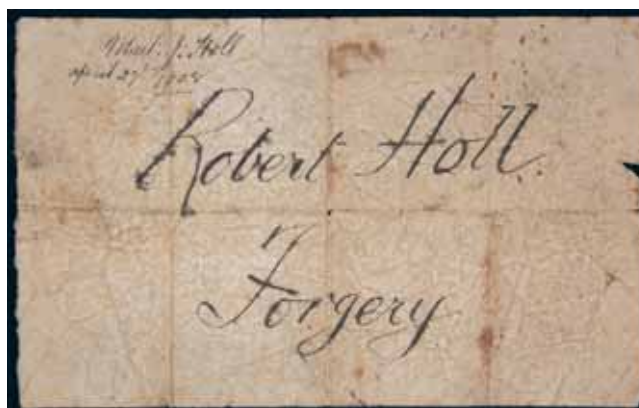 J. Holl
April 27 1908
Robert Holl.
Forgery